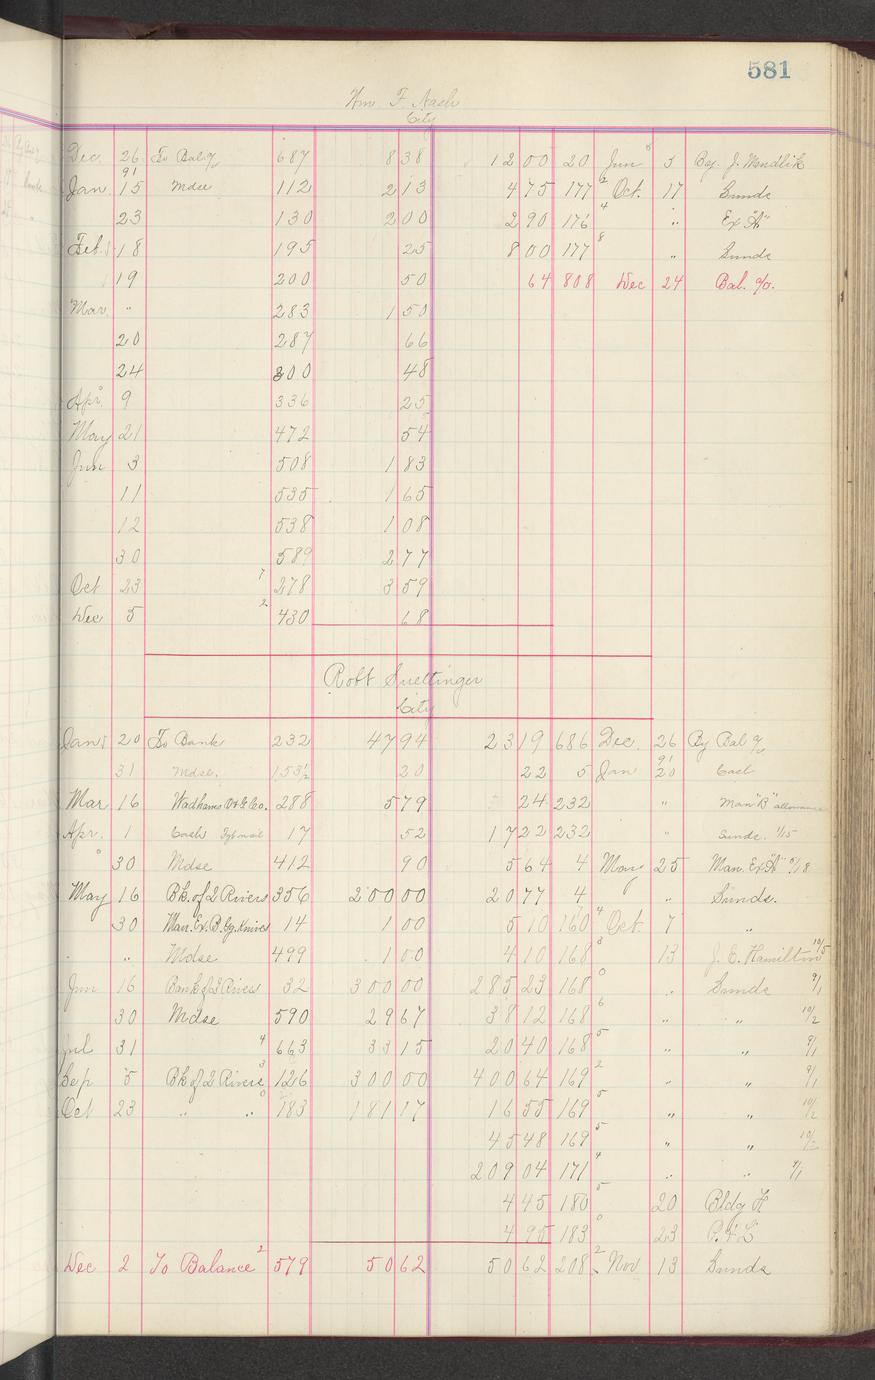 581
Wm. F. Nash
City
Dec. 26 To Bal 687 8 38 12 00 20 Jun 5 By J. Wendlik
91
Jan. 15 Mdse 112 2 13 4 75 177 2 Oct. 17 Sunds
23 130 2 00 2 90 176 4 " Ex "A"
Feb. 18 195 25 8 00 177 8 " Sunds
19 200 50 64 808 Dec 24 Bal. c/o.
Mar. " 283 1 50
20 287 66
24 300 48
Apr. 9 336 25
May 21 472 54
Jun 3 508 1 83
11 535 1 65
12 538 1 08
30 589 2 77
Oct 23 7 278 3 59
Dec 5 2 430 68
Robt Suettinger
City
Jan 20 To Bank 232 47 94 23 19 686 Dec. 26 By Bal
91
31 Mdse. 153½ 20 22 5 Jan 20 Cash
Mar 16 Wadhams O & G Co. 288 5 79 24 232 " Man "B" allowance
Apr. 1 Cash 17 52 17 22 232 " Sunds. 1/15
30 Mdse 412 90 5 64 4 May 25 Man. Ex "A"
May 16 Bk. of 2 Rivers 356 200 00 20 77 4 " Sunds.
30 Man. Ex. B. Cy. Knives 14 1 00 5 10 160 4 Oct. 7 "
" Mdse 499 1 00 4 10 168 8 13 J. E. Hamilton 10/5
Jun 16 Bank of 2 Rivers 32 300 00 285 23 168 0 " Sunds 9/1
30 Mdse 590 29 67 38 12 168 6 " " 10/2
Jul 31 4 663 33 15 20 40 168 5 " " 9/1
Sep 5 Bk of 2 Rivers 3 126 300 00 400 64 169 2 " " 9/1
Oct 23 " " 0 183 181 17 16 55 169 5 " " 10/2
45 48 169 5 " " 10/2
209 04 171 4 " " 9/1
4 45 180 5 20 Bldg H
4 95 183 0 23 P. & L
Dec 2 To Balance 2 579 50 62 50 62 208 2 Nov 13 Sunds